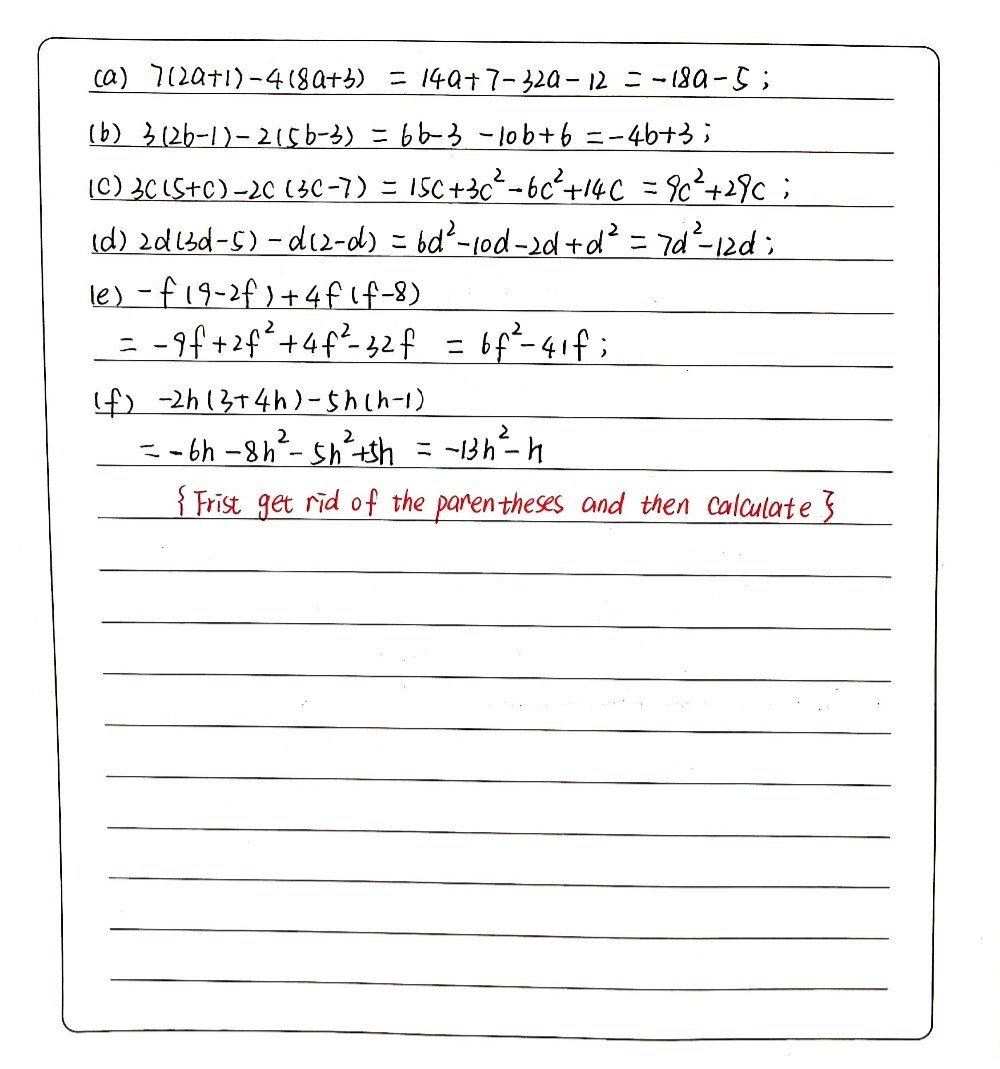 (a) 7(2a+1)-4(8a+3) = 14a+7-32a-12 = -18a-5;
(b) 3(2b-1)-2(5b-3) = 6b-3-10b+6 = -4b+3;
(c) 3c(5+c)-2c(3c-7) = 15c+3c²-6c²+14c = 9c²+29c;
(d) 2d(3d-5)-d(2-d) = 6d²-10d-2d+d² = 7d²-12d;
(e) -f(9-2f)+4f(f-8)
= -9f+2f²+4f²-32f = 6f²-41f;
(f) -2h(3+4h)-5h(h-1)
= -6h-8h²-5h²+5h = -13h²-h
{Frist get rid of the parentheses and then calculate}